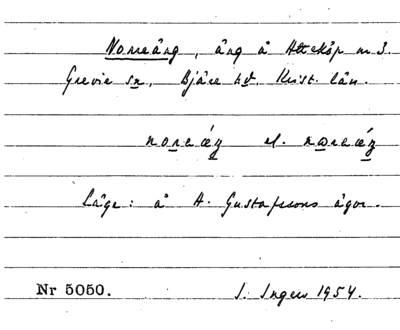 Norreäng, äng å Atteköp nr 3.
Grevie sn, Bjäre hd, Krist. län.
el.
Läge: å A. Gustafssons ägor.
Nr 5050. S. Ingers 1954.